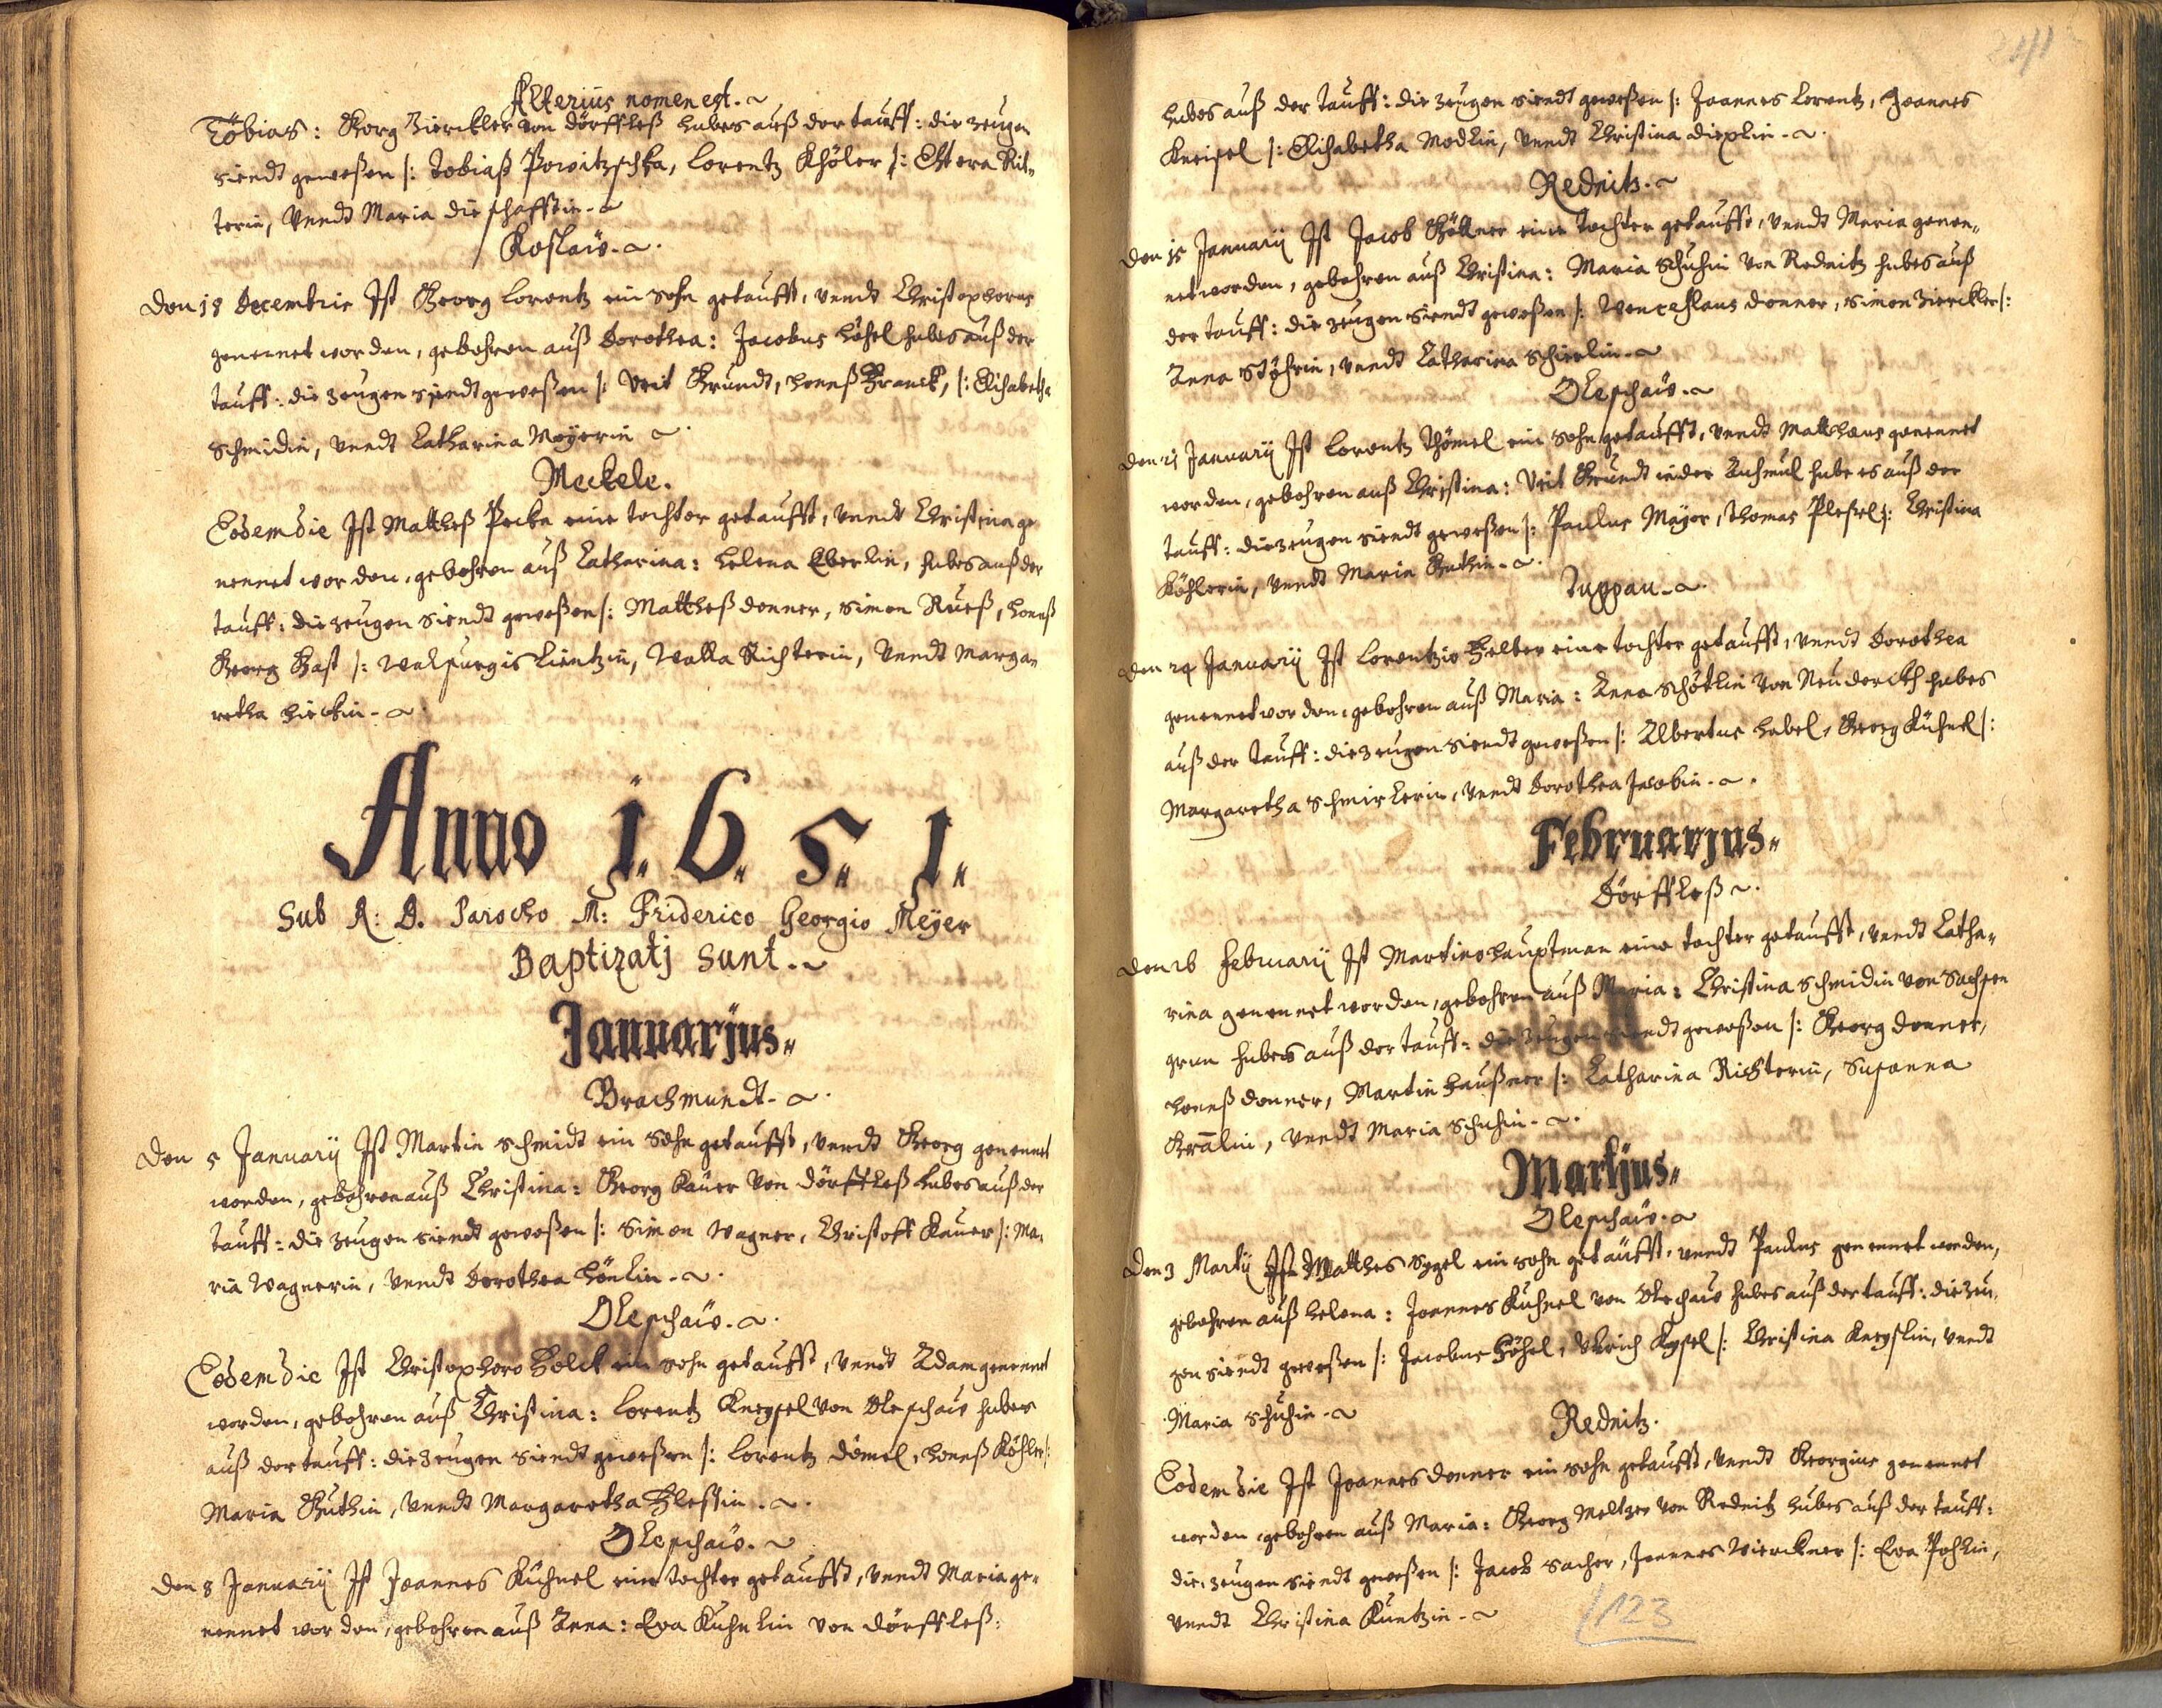 Alterius nomen est.
Tobias: Georg Zierckler von Dörffleß hubes auß der tauff: die zeugen
siendt geweßen /: Tobiaß Powitzschka, Lorentz Khöler /: Eht era Rit-
terin, vendt Maria die schafftin.
Koslaw.
Den 18 Decembris Ist Georg Lorentz ein sohn getaufft, vendt Christophorus
genennet worden, gebohren auß Dorothea: Jacobus Höhel hubes auß der
tauff: die zeugen siendt geweßen /: Veit Grundt, Honeß Franck, /: Elisabetha
Schmidin, vendt Catharina Mayerin
Meckele.
Eodem die Ist Mattheß Pecka eine tochter getaufft, vendt Christina ge
nennet worden, gebohren auß Catharina: Helena Eberlin, hubes auß der
tauff: die zeugen siendt geweßen /: Mattheß Donner, Simon Rueß, Honeß
Georg Gast /: Walpurgis Lientzin, Walla Richterin, vendt Marga-
retha Hirckin.
Anno 1651.
Sub R: D. Parocho M: Friderico Georgio Meyer
Baptizatj Sunt.
Januarjus
Brachmundt.
Den 5 Januarij Ist Martin Schmidt ein Sohn getaufft, vendt Georg genennet
worden, gebohren auß Christina: Georg Kauer von Dörffleß hubes auß der
tauff: die zeugen siendt geweßen /: Simon Wagner, Christoff Kauer /: Ma-
ria Wagnerin, vendt Dorothea Hönlin.
Olepschaw.
Eodem die Ist Christophoro Holck ein sohn getaufft, vendt Adam genennet
worden, gebohren auß Christina: Lorentz Kneysel von Oleschaw hubes
auß der tauff: die zeugen siendt geweßen /: Lorentz Dömel, Honeß Köhler /:
Maria Guthin, vendt Margaretha Hlessin.
Olepschaw.
Den 8 Januarij Ist Joannes Kühnel eine tochter getaufft, vendt Maria ge-
nennet worden, gebohren auß Anna: Eva Kuhnlin von Dörffleß:
241
hubes auß der tauff: die zeugen siendt geweßen /: Joannes Lorentz, Joannes
Kneisel /: Elisabetha Modlin, vendt Christina Dieplin.
Rednitz.
Den 15 Januarij Ist Jacob Göttner eine tochter getaufft, vendt Maria genen-
net worden, gebohren auß Christina: Maria Schuhin von Rednitz hubes auß
der tauff: die zeugen siendt geweßen /: Wenceslaus Donner, Simon Zierckler /:
Anna Stöhrin, vendt Catharina Schierlin.
Olepschaw.
Den 21 Januarij Ist Lorentz Thömel ein Sohn getaufft, vendt Matthaeus genennet
worden, gebohren auß Christina: Veit Grundt in der Auhmul hube es auß der
tauff: die zeugen siendt geweßen /: Paulus Mayor, Thomas Pleßel /: Christina
Köhlerin, vendt Maria Guthin.
Tuppau.
Den 24 Januarij Ist Lorentzio Helter eine tochter getaufft, vendt Dorothea
genennet worden, gebohren auß Maria: Anna Schötlin von Neuderckh hubes
auß der tauff: die zeugen siendt geweßen /: Albertus Habel, Georg Kühnel /:
Margaretha Schmirlerin, vendt Dorothea Jacobin.
Februarjus
Dörffleß.
Den 26 Februarij Ist Martino Hauptman eine tochter getaufft, vendt Catha-
rina genennet worden, gebohren auß Maria: Christina Schmidin von Sachsen
grun hubes auß der tauff: die zeugen siendt geweßen /: Georg Donner,
Honeß Donner, Martin Haußner /: Catharina Richterin, Susanna
Kralin, vendt Maria Schuhin.
Martjus
Olepschaw.
Den 3 Martij Ist Matthes Sygel ein sohn getaufft, vendt Paulus genennet worden,
gebohren auß Helena: Joannes Kuhnel von Oleschaw hubes auß der tauff: die zeu-
gen siendt geweßen /: Jacobus Höhel, Ulrich Kysel /: Christina Kneyslin, vendt
Maria Schuhin.
Rednitz.
Eodem die Ist Joannes Donner ein sohn getaufft, vendt Georgius genennet
worden, gebohren auß Maria: Georg Meltzer von Rednitz hubes auß der tauff:
die zeugen siendt geweßen /: Jacob Sacher, Joannes Vierckner /: Eva Pohlin,
vendt Christina Kuntzin.
123